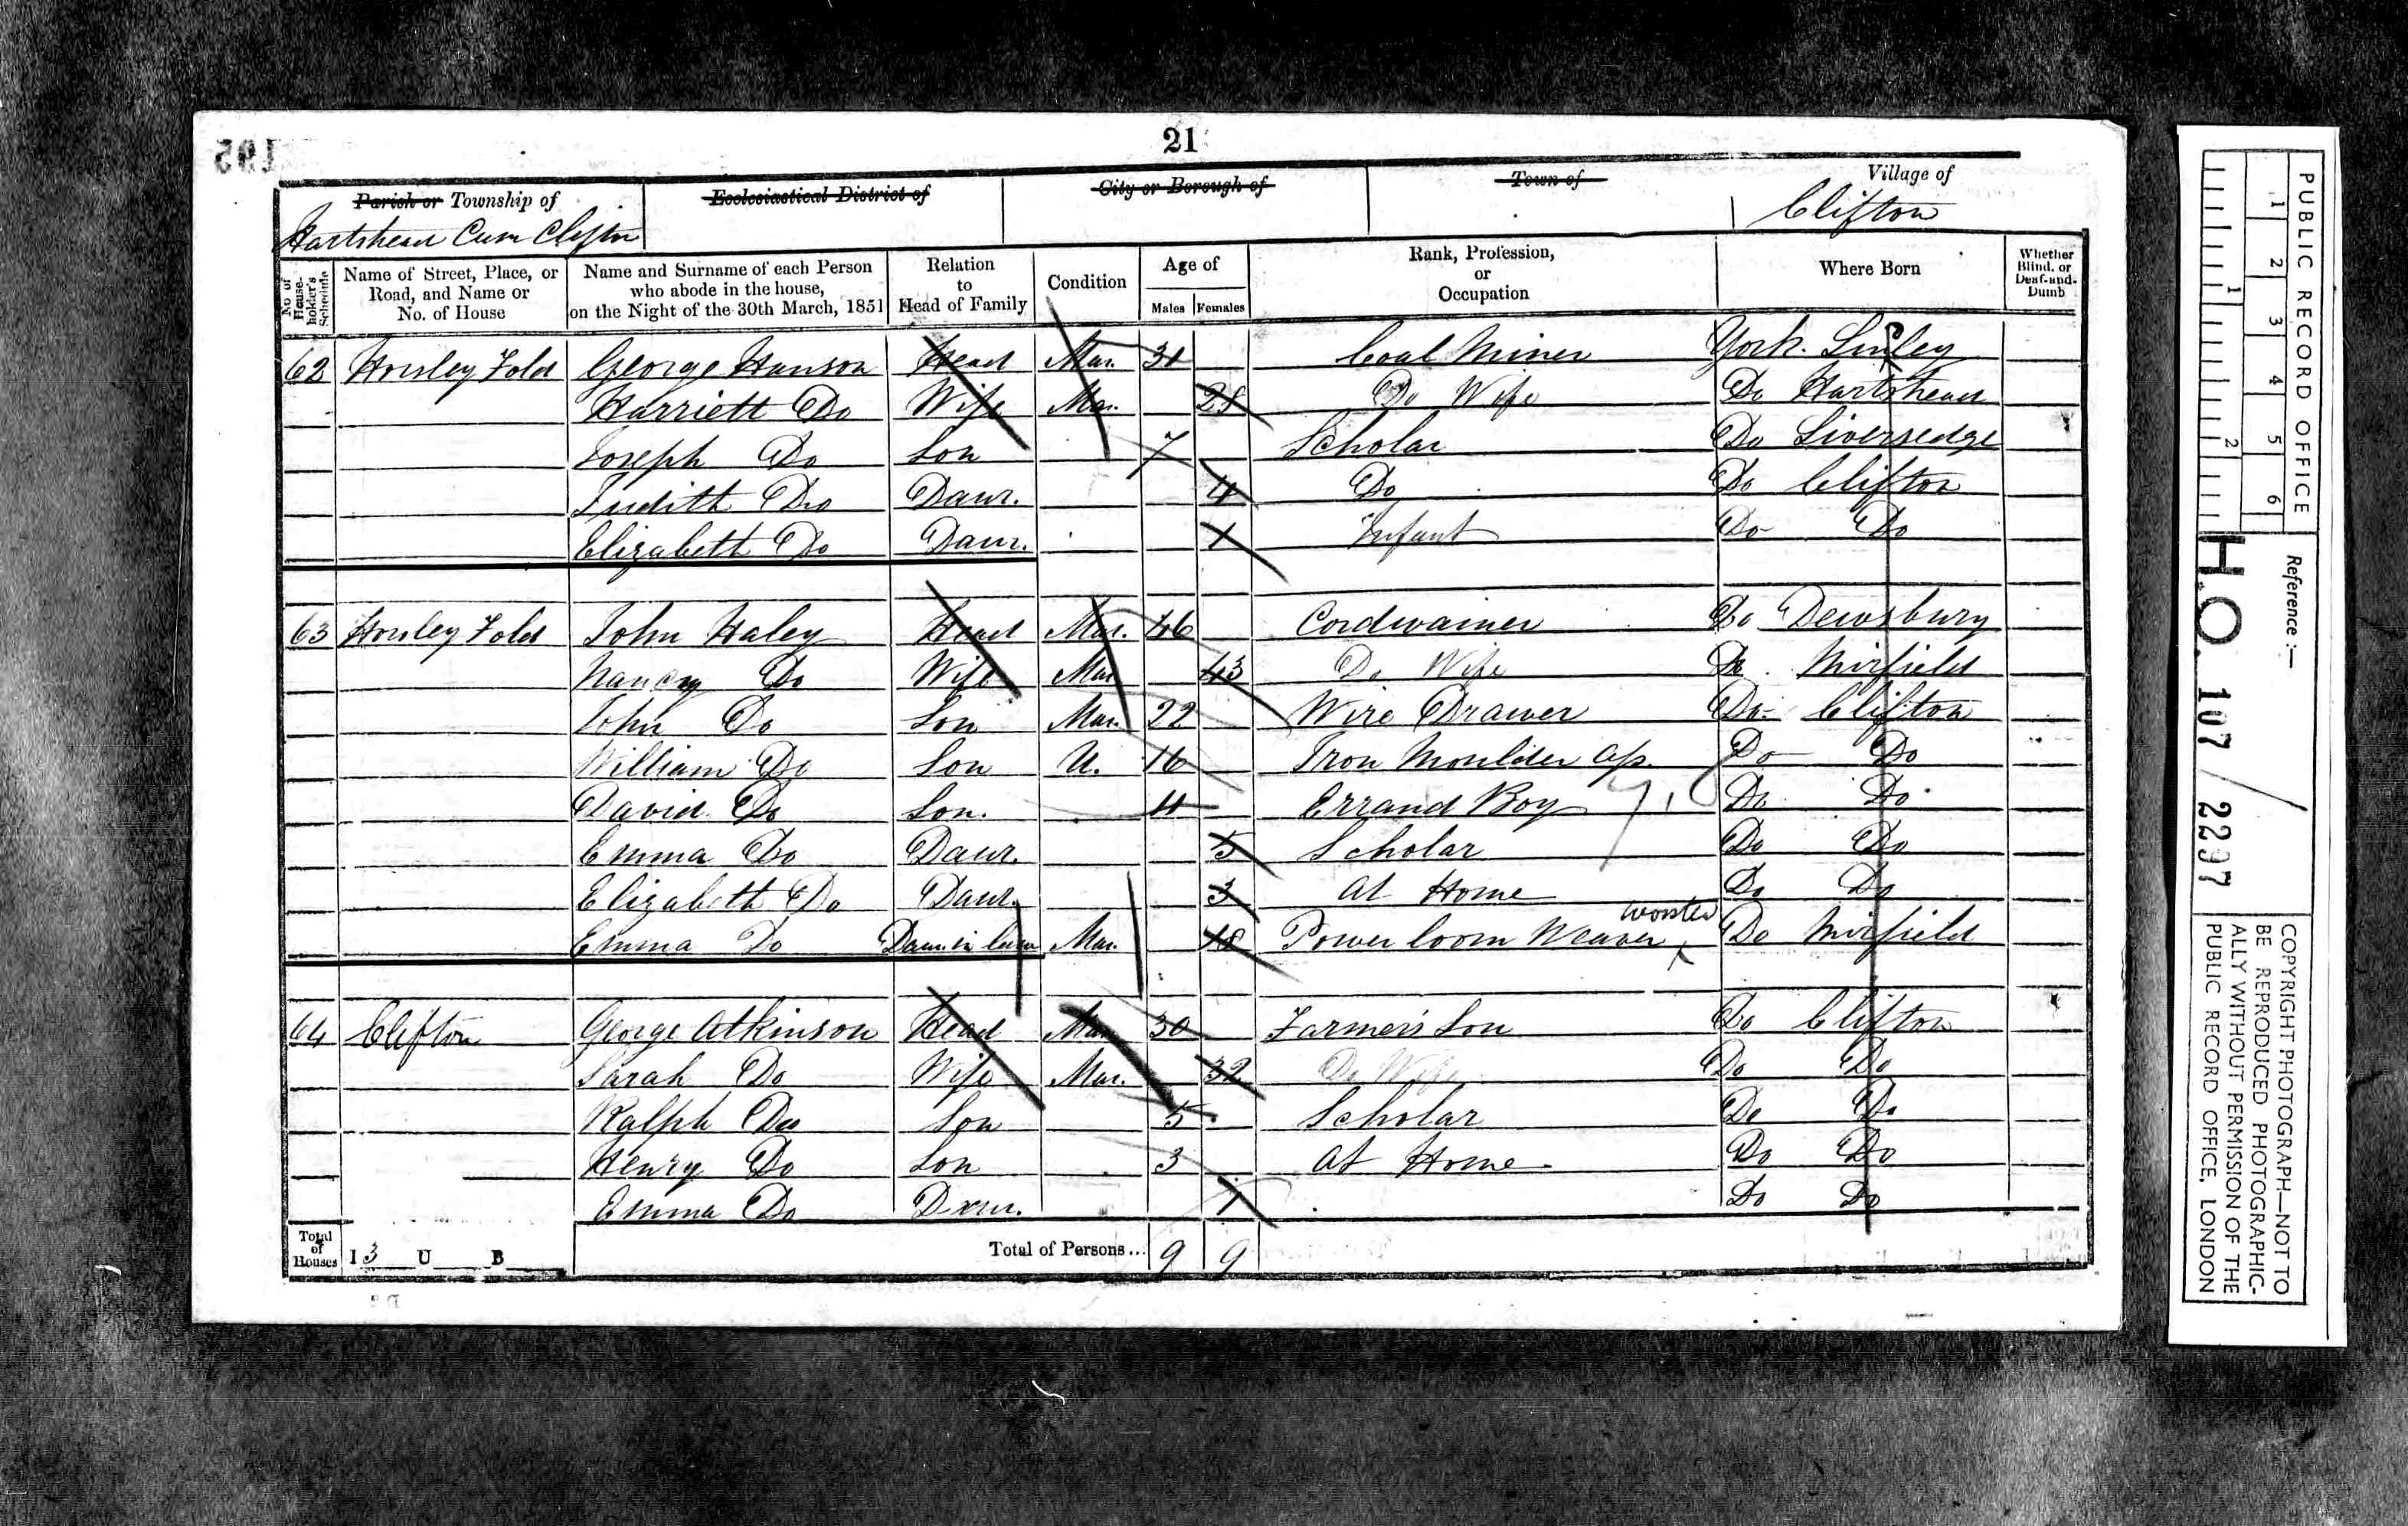 21
Parish or Township of Ecclesiastical District of City or Borough of Town of Village of
Hartshead Cum Clifton Clifton
No. of House-holder's Schedule Name of Street, Place, or Road, and Name or No. of House Name and Surname of each Person who abode in the house, on the Night of the 30th March, 1851 Relation to Head of Family Condition Age of Males Females Rank, Profession, or Occupation Where Born Whether Blind, or Deaf-and-Dumb
62 Housley Fold George Hanson Head Mar. 31 Coal Miner York. Linley
Harriett Do Wife Mar. 28 Do Wife Do Hartshead
Joseph Do Son 7 Scholar Do Liversedge
Judith Do Daur. 4 Do Do Clifton
Elizabeth Do Daur. 1 Infant Do Do
63 Housley Fold John Haley Head Mar. 46 Cordwainer Do Dewsbury
Nancy Do Wife Mar. 43 Do Wife Do Mirfield
John Do Son Mar. 22 Wire Drawer Do Clifton
William Do Son U. 16 Iron Moulder Ap. Do Do
David Do Son. 11 Errand Boy Do Do
Emma Do Daur. 5 Scholar Do Do
Elizabeth Do Daur. 3 At Home Do Do
Emma Do Daur. in law Mar. 18 Power loom Weaver worsted Do Mirfield
64 Clifton George Atkinson Head Mar. 30 Farmer's Son Do Clifton
Sarah Do Wife Mar. 32 Do Wife Do Do
Ralph Do Son 5 Scholar Do Do
Henry Do Son 3 At Home Do Do
Emma Do Daur. 1 Do Do
Total of Houses I 3 U B Total of Persons... 9 9
PUBLIC RECORD OFFICE
1 2 3 4 5 6
1 2
Reference :—
H.O. 107 / 2297
COPYRIGHT PHOTOGRAPH—NOT TO
BE REPRODUCED PHOTOGRAPHIC-
ALLY WITHOUT PERMISSION OF THE
PUBLIC RECORD OFFICE, LONDON